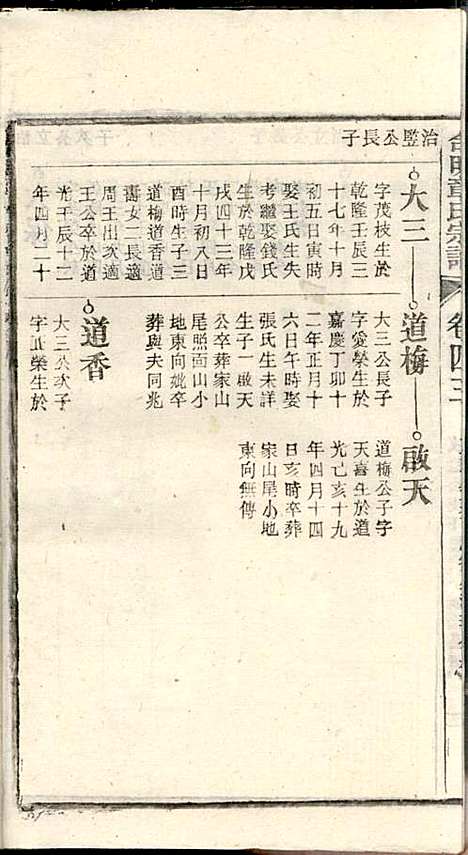 治瑿公長子
大三
字茂枝生於
乾隆壬辰三
十七年十月
初五日寅時
娶王氏生失
考繼娶錢氏
生於乾隆戊
戌四十三年
十月初八日
酉時生子三
道梅道香道
壽女二長適
周王出次適
王公卒於道
光壬辰十二
年四月二十
道梅
大三公長子
字愛學生於
嘉慶丁卯十
二年正月十
六日午時娶
張氏生未詳
生子一啟天
公卒葬家山
尾照面山小
地東向妣卒
葬與夫同兆
道香
大三公次子
字正榮生於
啟天
道梅公子字
天喜生於道
光己亥十九
年四月十四
日亥時卒葬
家山尾小地
東向無傳
章氏宗譜
卷四三